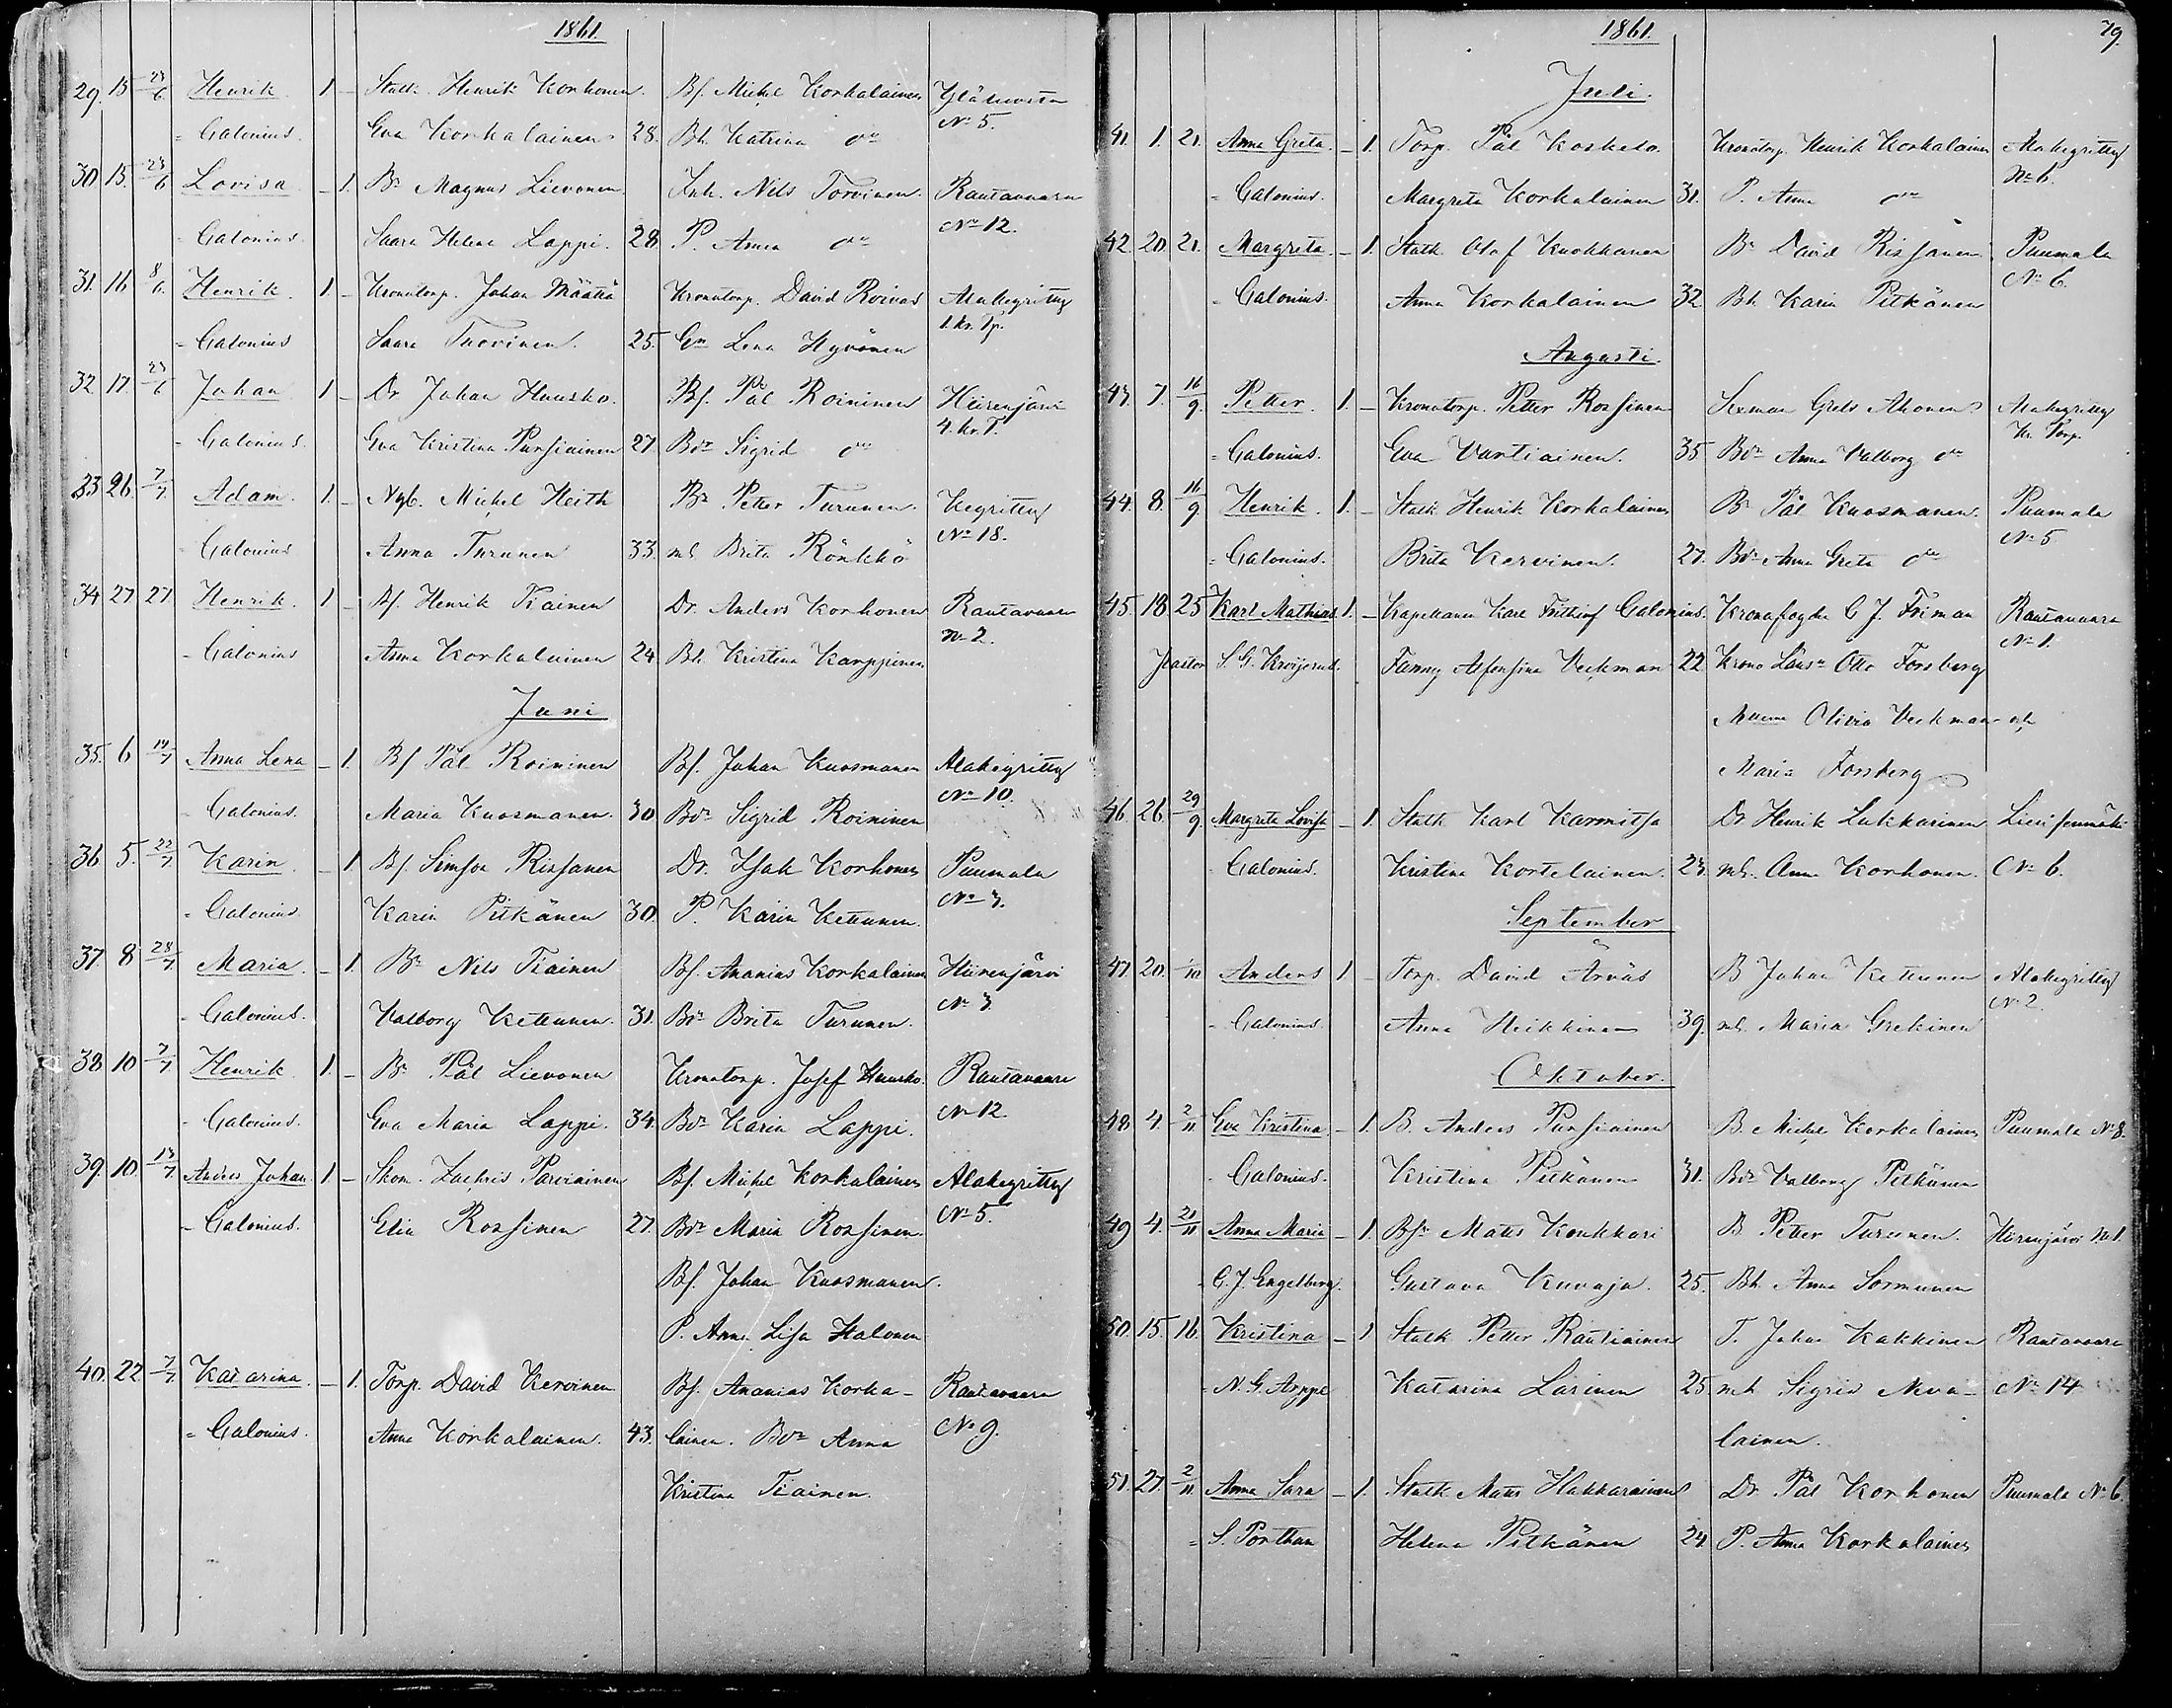 1861.
29. 15 23/6 Henrik 1 – Stath. Henrik Korhonen. Bf. Michel Korkalainen
" Calonius. Eva Korkalainen 28. Bh. Katrina d:o No 5.
30 15. 23/6 Lovisa – 1. Bn Magnus Lievonen Inh. Nils Torvinen. Rautavaara
" Calonius. Saara Helena Lappi. 28. P. Anna d:o No 12.
31. 16 8/6. Henrik. 1 – Kronotorp. Johan Määttä Kronotorp. David Roivas Alakegritty
1. kr. Tp.
" Calonius Saara Torvinen. 25. Gn Lena Hyvönen
32 17. 23/6 Johan 1 – Dr Johan Huusko. Bf. Pål Roininen Hiirenjärvi
4. kr. T.
" Calonius. Eva Kristina Pursiainen 27. Bdr Sigrid d:o
33 26. 7/7. Adam. 1. – Nyb. Michel Heith Bn Petter Turunen. Kegritty
No 18.
" Calonius Anna Turunen 33. mh. Brita Rönkkö
34 27. 27. Henrik. 1 – Bf. Henrik Tiainen Dr. Anders Korhonen Rautavaara
No 2.
" Calonius Anna Korkalainen 24. Bh. Kristina Karppinen
Juni
35. 6 14/7 Anna Lena – 1. Bf Pål Roininen Bf. Johan Kuosmanen Alakegritty
No 10.
" Calonius. Maria Kuosmanen. 30 Bdr Sigrid Roininen
36 5. 22/7. Karin – 1. Bf. Simson Rissanen Dr. Isak Korhonen Puumala
No 3.
" Calonius. Karin Pitkänen 30. P. Karin Kettunen.
37. 8 28/7. Maria. – 1. Bn Nils Tiainen Bf. Ananias Korkalainen Hiirenjärvi
No 3
" Calonius. Valborg Kettunen. 31. Bdr Brita Turunen.
38 10 7/7. Henrik 1. – Bn Pål Lievonen Kronotorp. Josef Huusko. Rautavaara
" Calonius. Eva Maria Lappi. 34. Bdr Karin Lappi. No 12.
39. 10. 13/7. Anders Johan 1 – Skom. Zachris Parviainen Bf. Michel Korkalainen Alakegritty
" Calonius. Elin Rossinen 27. Bdr Maria Rossinen. No 5.
Bf. Johan Kuosmanen.
P. Anna Lisa Halonen
40. 22 7/7. Katarina. – 1. Torp. David Kervinen Bf. Ananias Korka- Rautavaara
" Calonius. Anna Korkalainen. 43. lainen. Bdr Anna No 9.
Kristina Tiainen.
1861. 79.
Juli.
41. 1. 21. Anna Greta. – 1. Torp. Pål Koskelo. Kronotorp. Henrik Korkalainen Alakegritty
No 6.
" Calonius. Margreta Korkalainen 31. P. Anna d:o
42. 20. 21. Margreta. – 1. Stath Olof Kuokkanen Bn David Rissanen Puumala
No 6.
" Calonius. Anna Korkalainen 32 Bh. Karin Pitkänen
Augusti.
43. 7. 16/9. Petter. 1. – Kronotorp. Petter Rossinen Sexman Grels Ahonen Alakegritty
Kr. Torp.
" Calonius. Eva Vartiainen. 35 Bdr Anna Valborg d:o
44. 8. 16/9 Henrik. 1. – Stath Henrik Korkalainen Bn Pål Kuosmanen. Puumala
No 5
" Calonius. Brita Kervinen. 27. Bdr Anna Greta d:o
45. 18. 25 Karl Mathias 1. – Kapellanen Karl Frithiof Calonius. Kronofogden C J. Friman Rautavaara
No 1.
Pastor Fanny Alfonsina Veckman 22 Krono Länsn Otto Forsberg
Olivia Veckman och
Maria Forsberg
46. 26. 29/9. Margreta Lovisa – 1. Stath Karl Karmitsa Dr Henrik Lukkarinen
" Calonius. Kristina Kortelainen. 23. mh. Anna Korhonen. No 6.
September
47. 20. /10 Anders 1 – Torp. David Ärväs B Johan Kettunen Alakegritty
No 2.
" Calonius. Anna Heikkinen 39. mh. Maria Grekinen
Oktober.
48 4. 2/11 Eva Kristina – 1. B. Anders Pursiainen B. Michel Korkalainen Puumala No 8.
" Calonius. Kristina Pitkänen 31. Bdr Valborg Pitkänen
49 4. 21/11 Anna Maria – 1. Bsn Mats Koukkari B Petter Turunen. Hiirenjärvi No 1.
" C. J. Engelberg. Gustava Kuvaja. 25. Bh. Anna Sormunen
50. 15. 16. Kristina – 1 Stath Petter Rautiainen T. Johan Kakkinen Rautavaara
" N. G. Arppe Katarina Larinen 25. mh Sigrid Neva- No 14
lainen.
51. 27. 2/11 Anna Sara – 1. Stath Mats Hakkarainen Dr. Pål Korhonen Puumala No 6.
" S. Porthan Helena Pitkänen 24. P. Anna Korkalainen